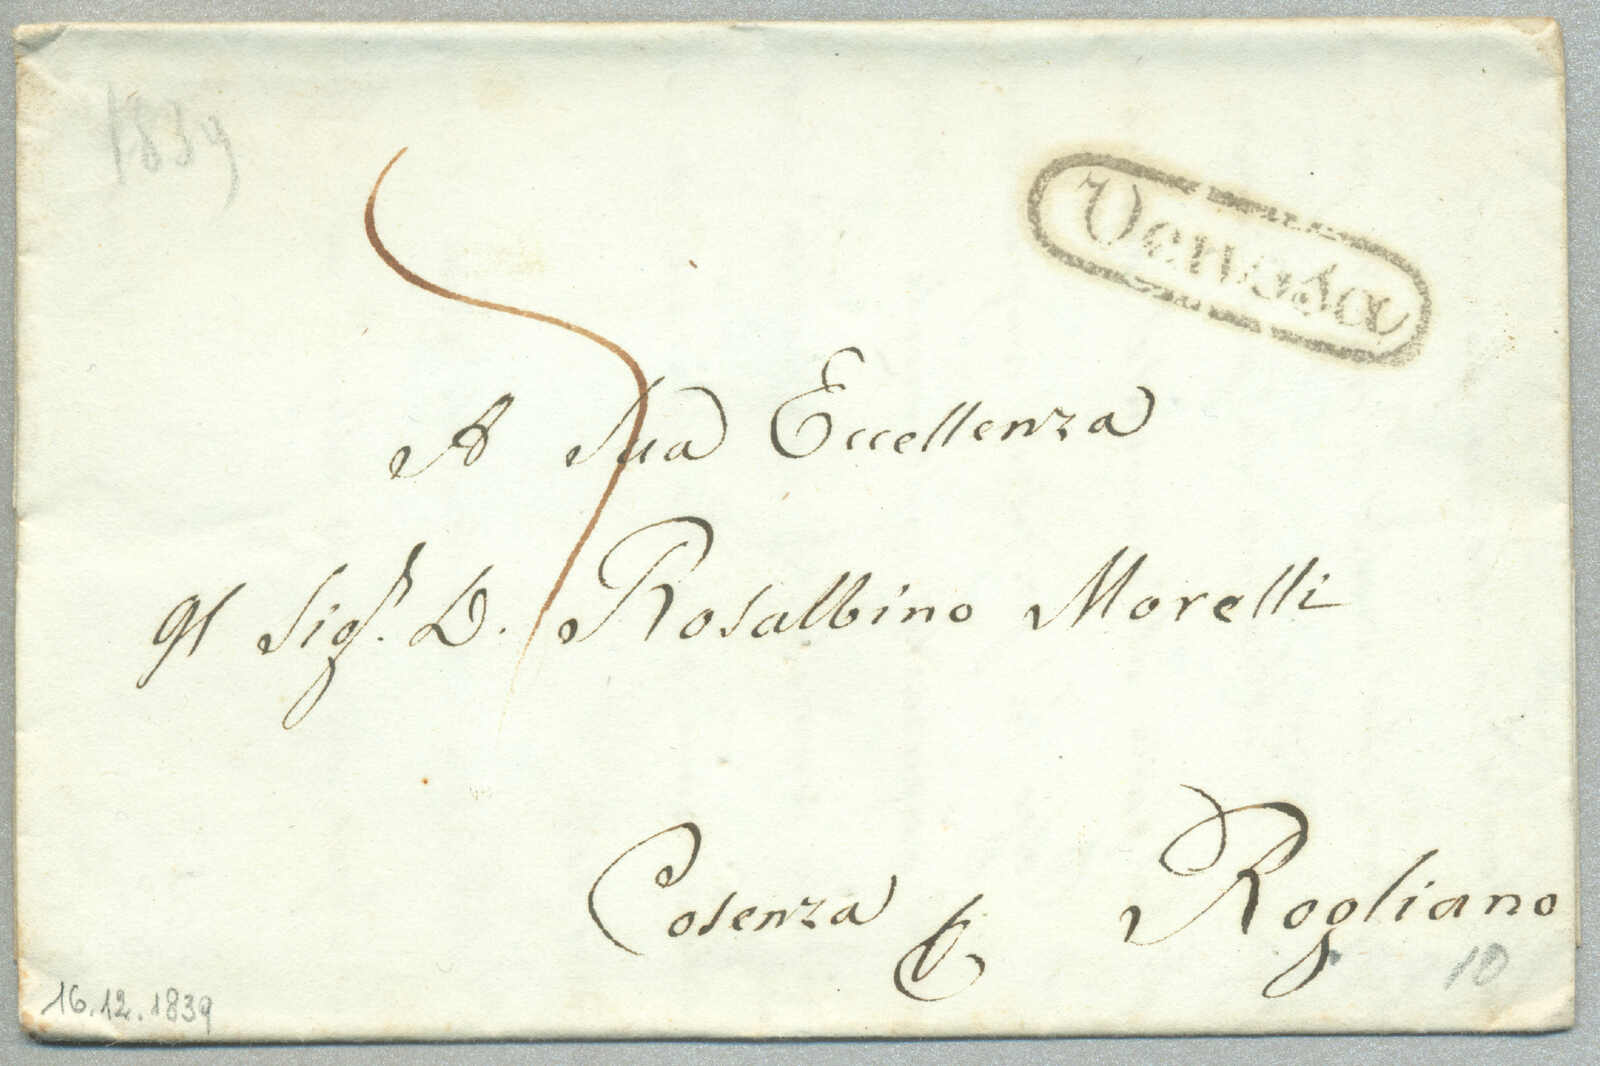 1839
Venosa
A Sua Eccellenza
Al Sig.r D. Rosalbino Morelli
Cosenza p Rogliano
10
16.12.1839